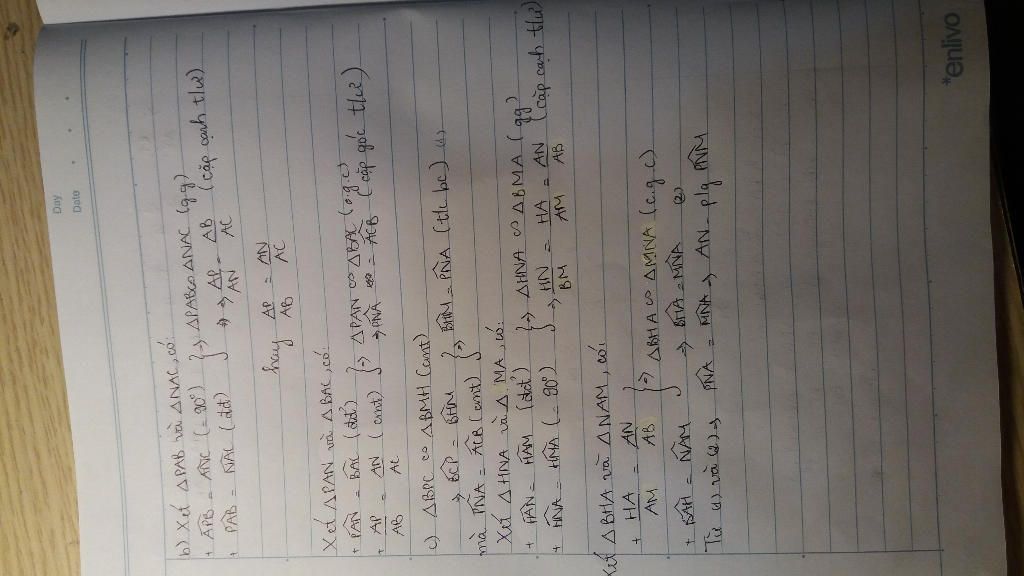 Day
Date
b) Xét △PAB và △NAC, có:
+ APB = ANC (= 90°) } => △PAB ∽ △NAC (g.g)
+ PAB = NAC (đđ) => AP/AN = AB/AC (cặp cạnh t/ứ)
hay AP/AB = AN/AC
Xét △PAN và △BAC, có:
+ PAN = BAC (đđ) } => △PAN ∽ △BAC (c.g.c)
+ AP/AB = AN/AC (cmt) => PNA = ACB (cặp góc t/ứ)
c) △BPC ∽ △BMH (cmt)
=> BCP = BHM } => BHM = PNA (t/c bc) (1)
mà PNA = ACB (cmt)
Xét △HNA và △ MA, có:
+ HAN = HAM (đđ) } => △HNA ∽ △BMA (gg)
+ HNA = HNA (= 90°) => HN/BM = HA/AM = AN/AB (cặp cạnh t/ứ)
Xét △BHA và △NAM, có:
+ HA/AM = AN/AB } => △BHA ∽ △MNA (c.g.c)
+ BAH = NAM => BHA = MNA (2)
Từ (1) và (2) => PNA = MNA => AN - p/g PNM
*enlivo